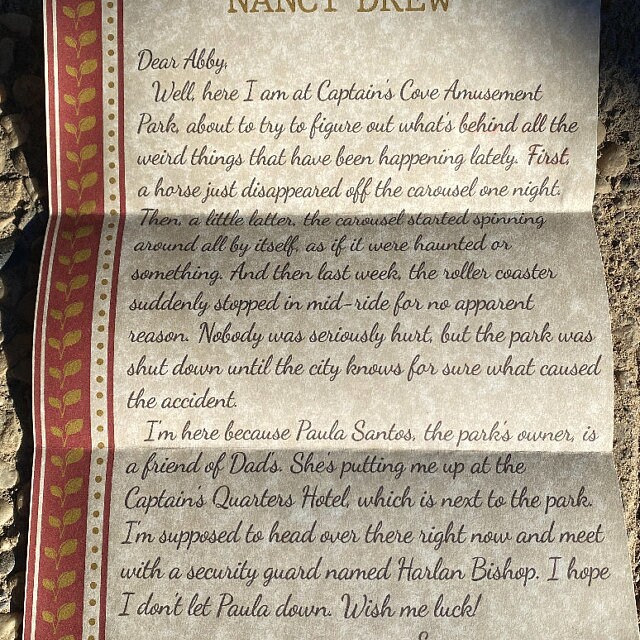 NANCY DREW
Dear Abby,
Well, here I am at Captain's Cove Amusement
Park, about to try to figure out what's behind all the
weird things that have been happening lately. First,
a horse just disappeared off the carousel one night.
Then, a little latter, the carousel started spinning
around all by itself, as if it were haunted or
something. And then last week, the roller coaster
suddenly stopped in mid-ride for no apparent
reason. Nobody was seriously hurt, but the park was
shut down until the city knows for sure what caused
the accident.
I'm here because Paula Santos, the park's owner, is
a friend of Dad's. She's putting me up at the
Captain's Quarters Hotel, which is next to the park.
I'm supposed to head over there right now and meet
with a security guard named Harlan Bishop. I hope
I don't let Paula down. Wish me luck!